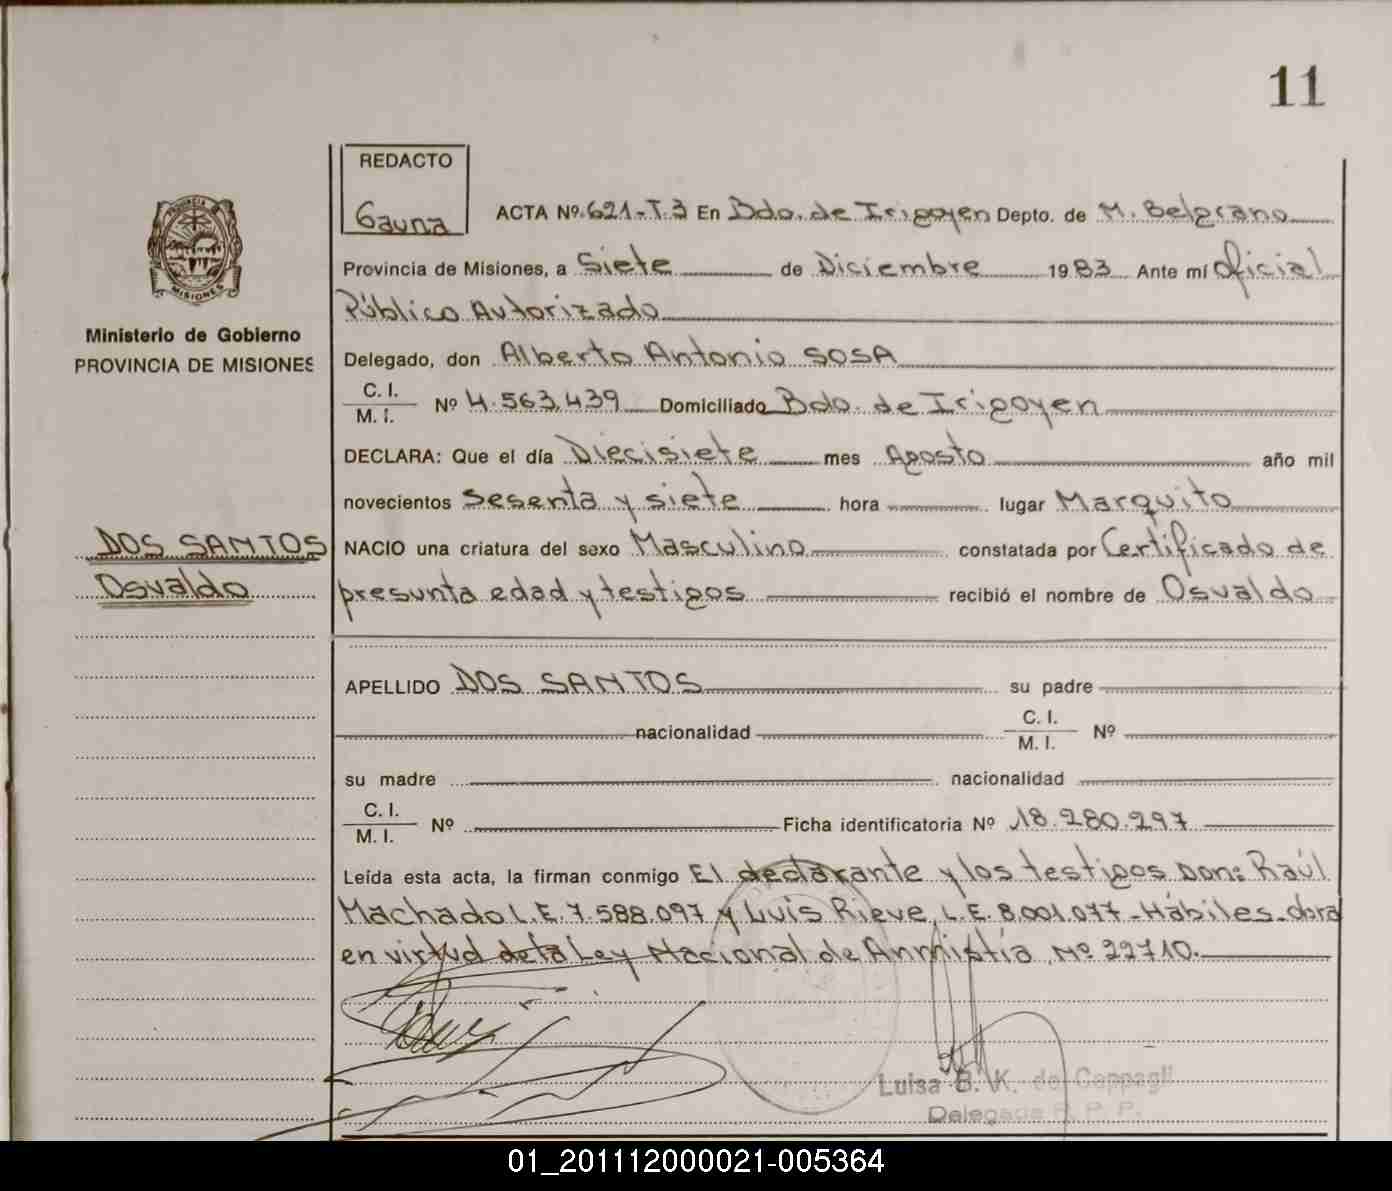 11
REDACTO
Gauna
ACTA Nº 621-T.3 En Bdo. de Irigoyen Depto. de M. Belgrano
Provincia de Misiones, a Siete de Diciembre 1983 Ante mí Oficial
Público Autorizado
MISIONES
Ministerio de Gobierno
PROVINCIA DE MISIONES
Delegado, don Alberto Antonio SOSA
C. I.
M. I. Nº 4.563.439 Domiciliado Bdo. de Irigoyen
DECLARA: Que el día Diecisiete mes Agosto año mil
novecientos Sesenta y siete hora lugar Marquito
DOS SANTOS
Osvaldo
NACIO una criatura del sexo Masculino constatada por Certificado de
presunta edad y testigos recibió el nombre de Osvaldo
APELLIDO DOS SANTOS su padre
nacionalidad C. I.
M. I. Nº
su madre nacionalidad
C. I.
M. I. Nº Ficha identificatoria Nº 18.280.297
Leída esta acta, la firman conmigo El declarante y los testigos Don: Raúl
Machado L.E. 7.588.097 y Luis Rieve, L.E. 8.001.077-Hábiles-obra
en virtud de la Ley Nacional de Anmistía Nº 22710.
Luisa B. K. de Ceppagli
Delegada R. P. P.
01_201112000021-005364